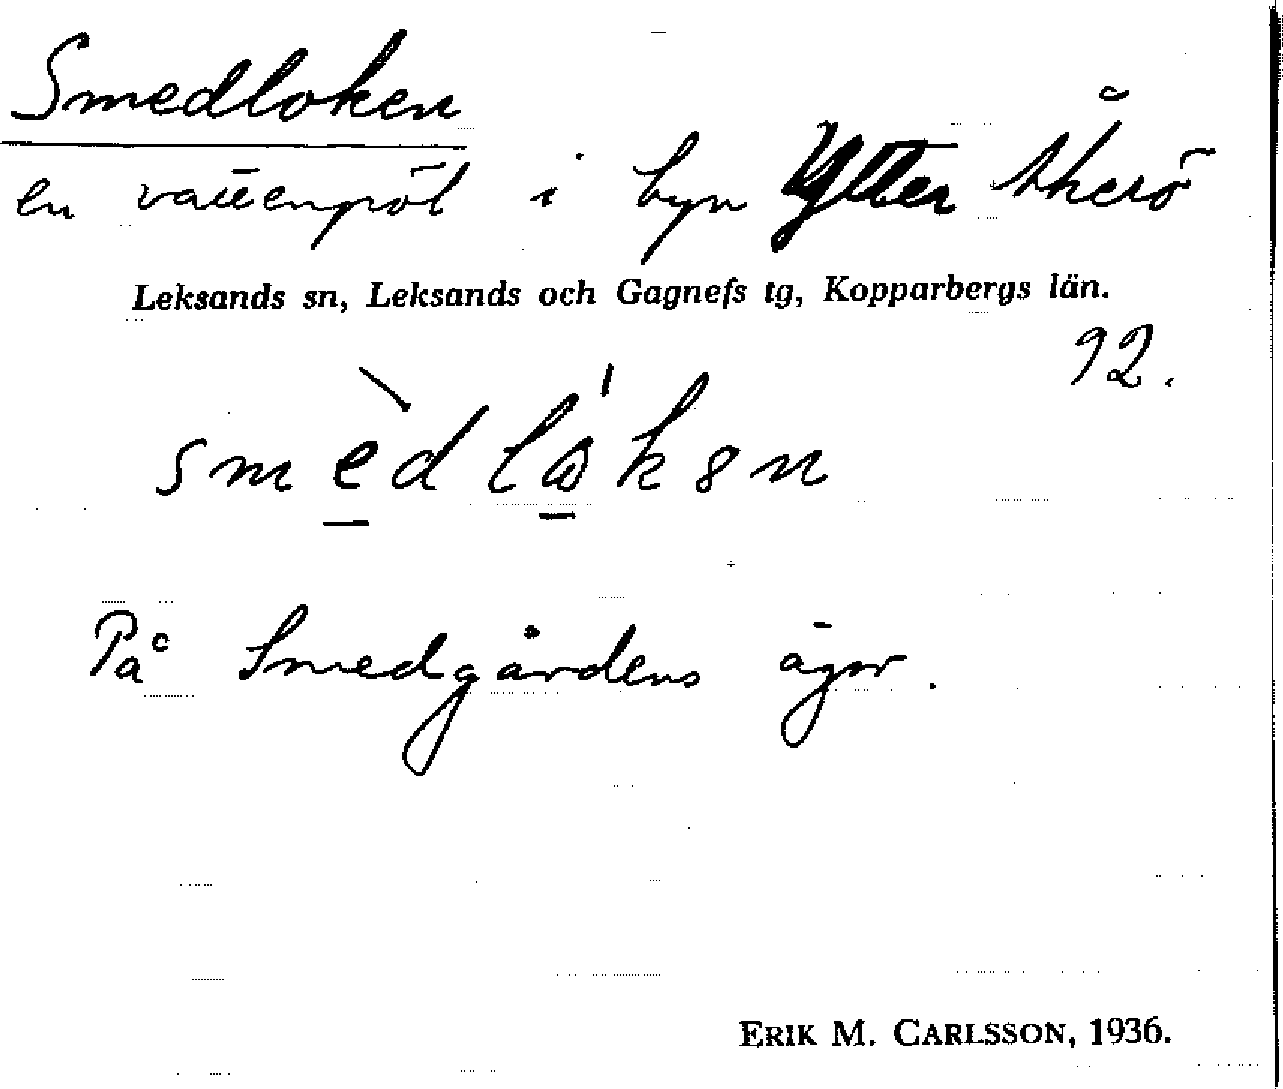 Smedloken
en vattenpöl i byn Ytter Åkerö
Leksands sn, Leksands och Gagnefs tg, Kopparbergs län.
92.
På Smedgårdens ägor.
ERIK M. CARLSSON, 1936.